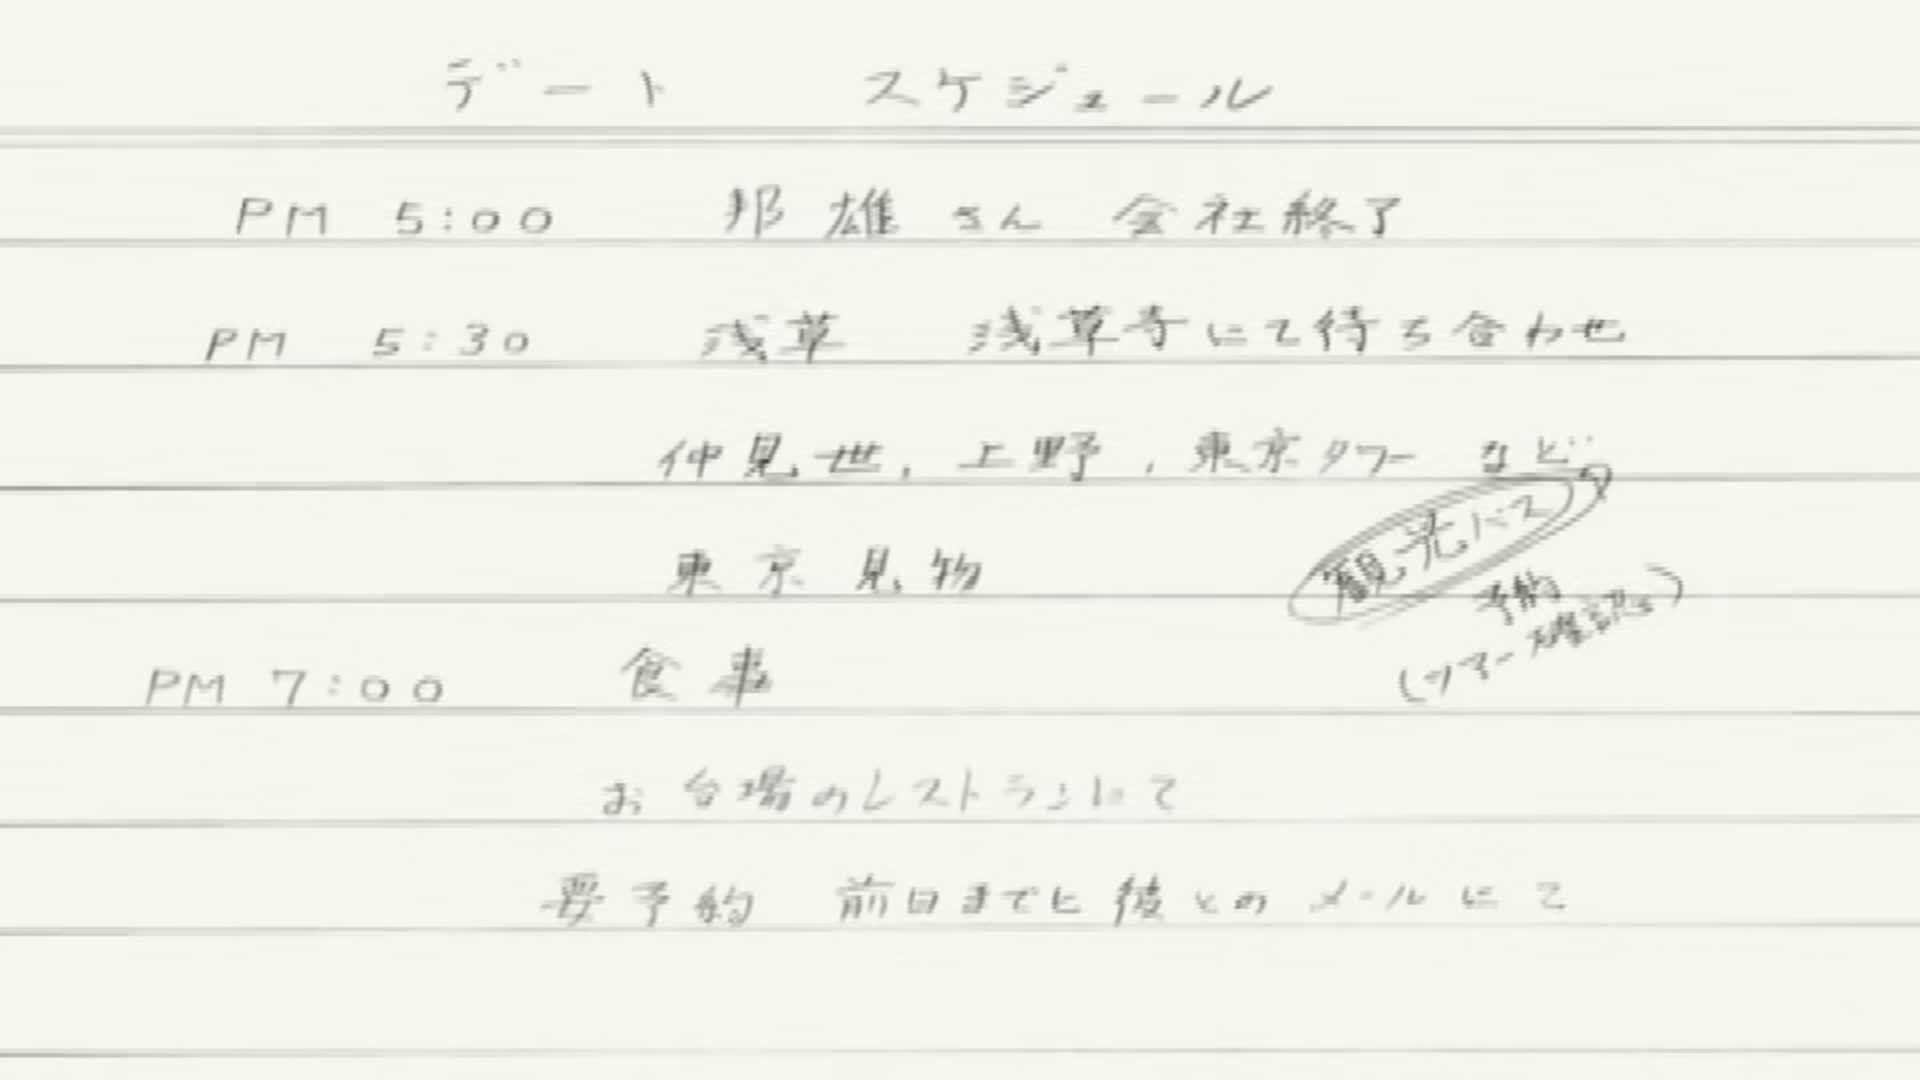 デート スケジュール
PM 5:00 邦雄さん 会社終了
PM 5:30 浅草 浅草寺にて待ち合わせ
仲見世, 上野, 東京タワー など
観光バス
東京見物
予約
(ツアー確認)
PM 7:00 食事
お台場のレストランにて
要予約 前日までに彼とのメールにて